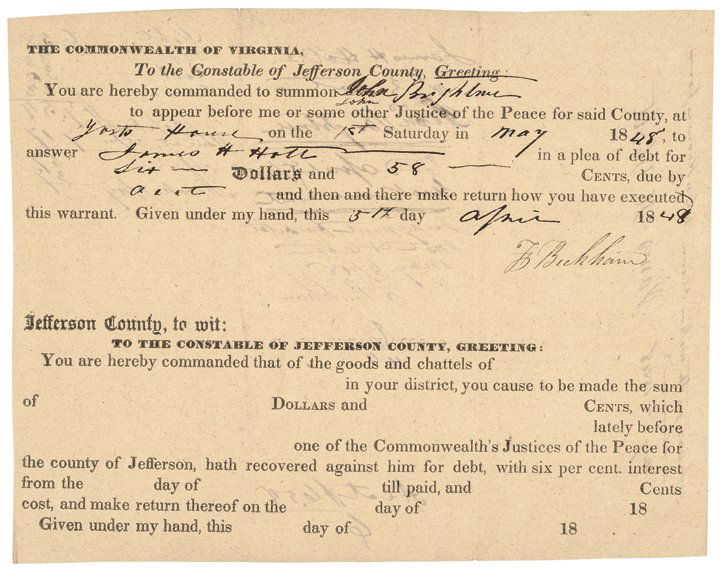 THE COMMONWEALTH OF VIRGINIA,
To the Constable of Jefferson County, Greeting:
You are hereby commanded to summon John
John
to appear before me or some other Justice of the Peace for said County, at
House on the 1st Saturday in May 1848, to
answer James H Holl in a plea of debt for
Six Dollars and 58 CENTS, due by
acct and then and there make return how you have executed
this warrant. Given under my hand, this 5th day April 1848
F Beckham
Jefferson County, to wit:
TO THE CONSTABLE OF JEFFERSON COUNTY, GREETING:
You are hereby commanded that of the goods and chattels of
in your district, you cause to be made the sum
of DOLLARS and CENTS, which
lately before
one of the Commonwealth's Justices of the Peace for
the county of Jefferson, hath recovered against him for debt, with six per cent. interest
from the day of till paid, and Cents
cost, and make return thereof on the day of 18
Given under my hand, this day of 18